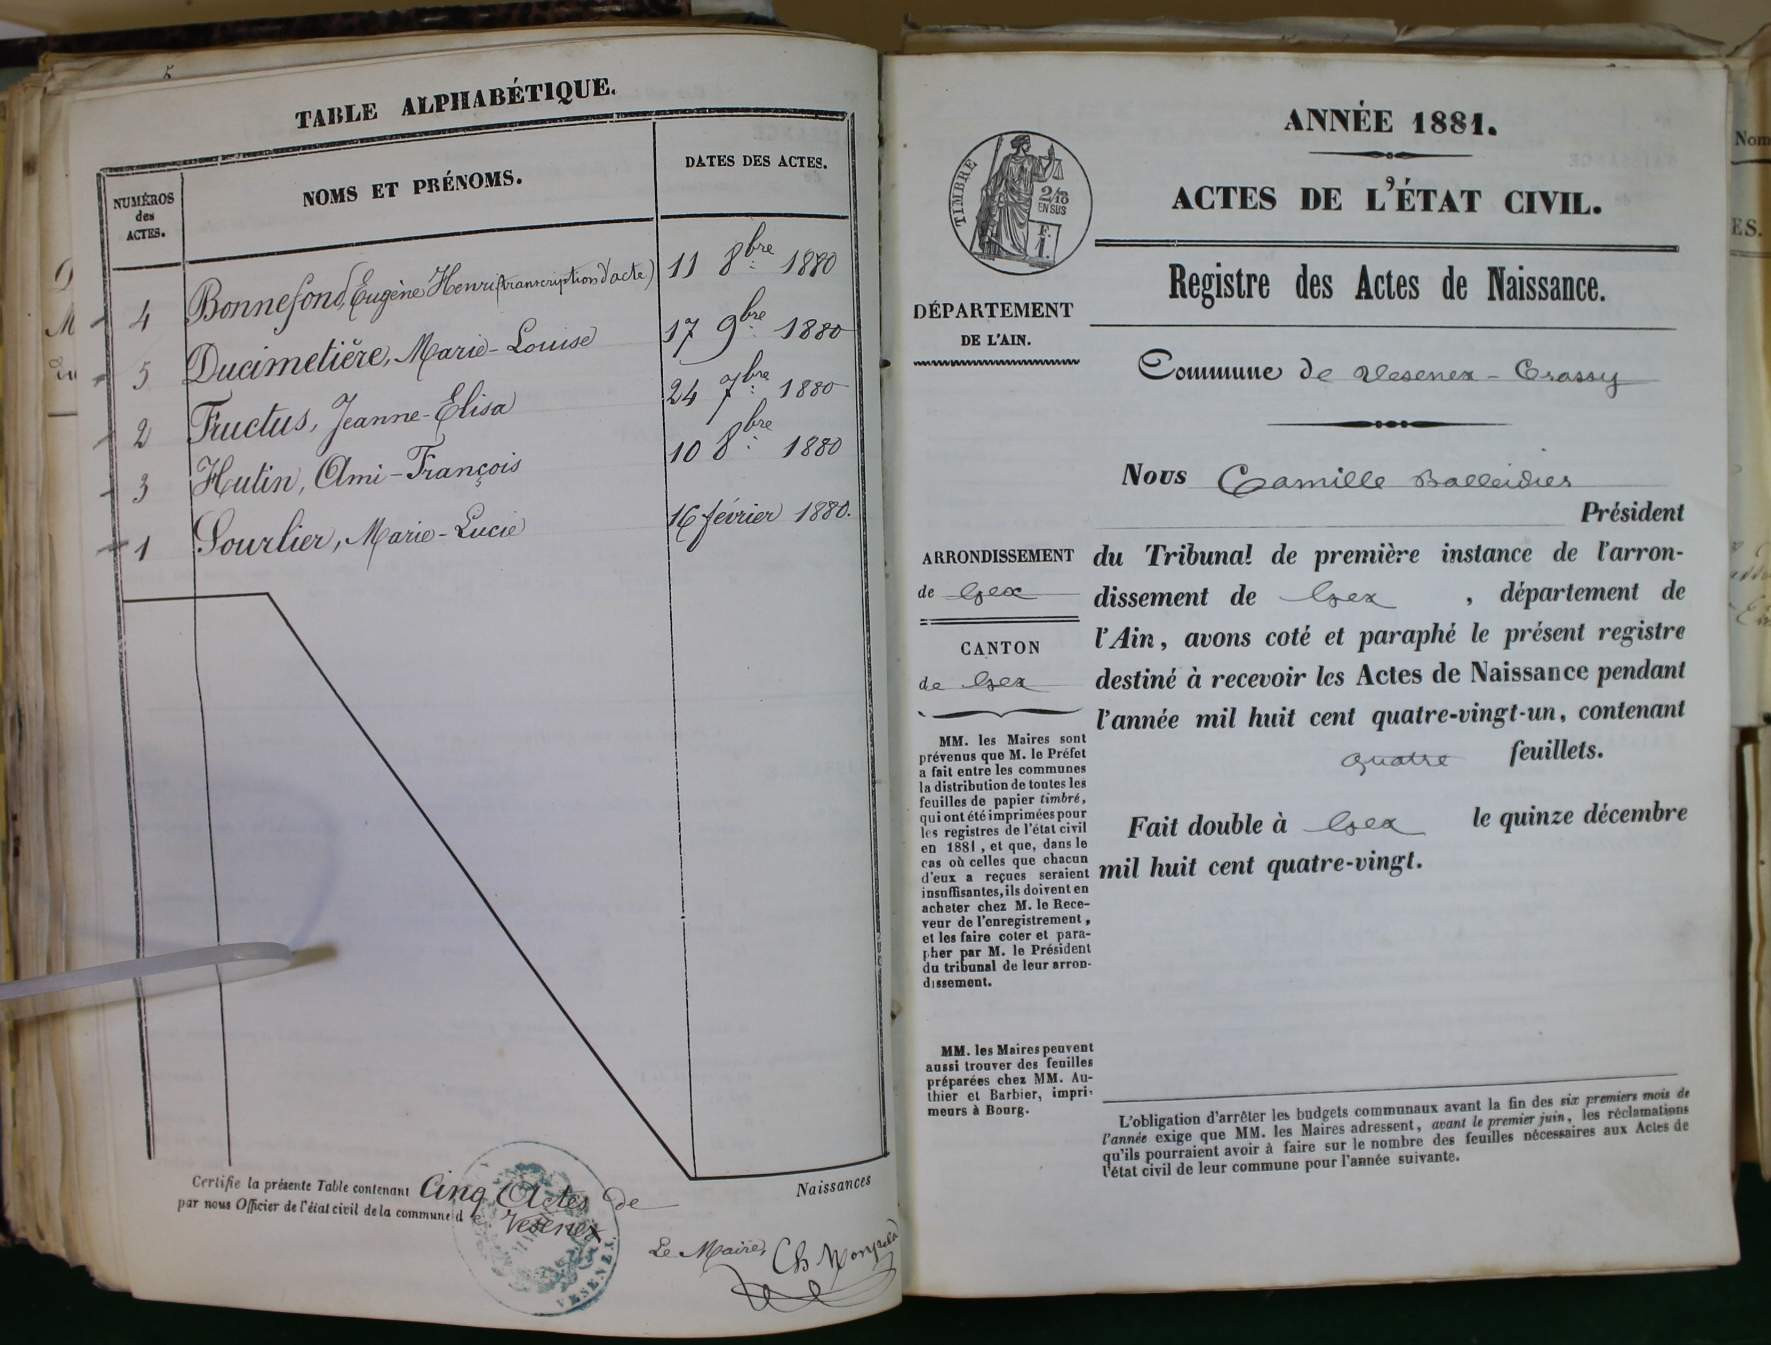 TABLE ALPHABÉTIQUE.
NUMÉROS des ACTES.
NOMS ET PRÉNOMS.
DATES DES ACTES.
4 Bonnefond, Eugène Henri (transcription d'acte) 11 8bre 1880
5 Ducimetière, Marie-Louise 17 9bre 1880
2 Fructus, Jeanne-Elisa 24 7bre 1880
3 Hutin, Ami-François 10 8bre 1880
1 Sourlier, Marie-Lucie 16 février 1880.
Certifié la présente Table contenant Cinq Actes de Naissances
par nous Officier de l'état civil de la commune d e Vesenex
Le Maire, Ch
VESENEX.
ANNÉE 1881.
ACTES DE L'ÉTAT CIVIL.
TIMBRE
2/10
EN SUS
F.
1.
Registre des Actes de Naissance.
DÉPARTEMENT
DE L'AIN.
Commune de Vesenex-Crassy
Nous Camille Balleidier
Président
du Tribunal de première instance de l'arron-
dissement de Gex , département de
l'Ain, avons coté et paraphé le présent registre
destiné à recevoir les Actes de Naissance pendant
l'année mil huit cent quatre-vingt-un, contenant
quatre feuillets.
Fait double à Gex le quinze décembre
mil huit cent quatre-vingt.
ARRONDISSEMENT
de Gex
CANTON
de Gex
MM. les Maires sont
prévenus que M. le Préfet
a fait entre les communes
la distribution de toutes les
feuilles de papier timbré,
qui ont été imprimées pour
les registres de l'état civil
en 1881, et que, dans le
cas où celles que chacun
d'eux a reçues seraient
insuffisantes, ils doivent en
acheter chez M. le Rece-
veur de l'enregistrement,
et les faire coter et para-
pher par M. le Président
du tribunal de leur arron-
dissement.
MM. les Maires peuvent
aussi trouver des feuilles
préparées chez MM. Au-
thier et Barbier, impri-
meurs à Bourg.
L'obligation d'arrêter les budgets communaux avant la fin des six premiers mois de
l'année exige que MM. les Maires adressent, avant le premier juin, les réclamations
qu'ils pourraient avoir à faire sur le nombre des feuilles nécessaires aux Actes de
l'état civil de leur commune pour l'année suivante.